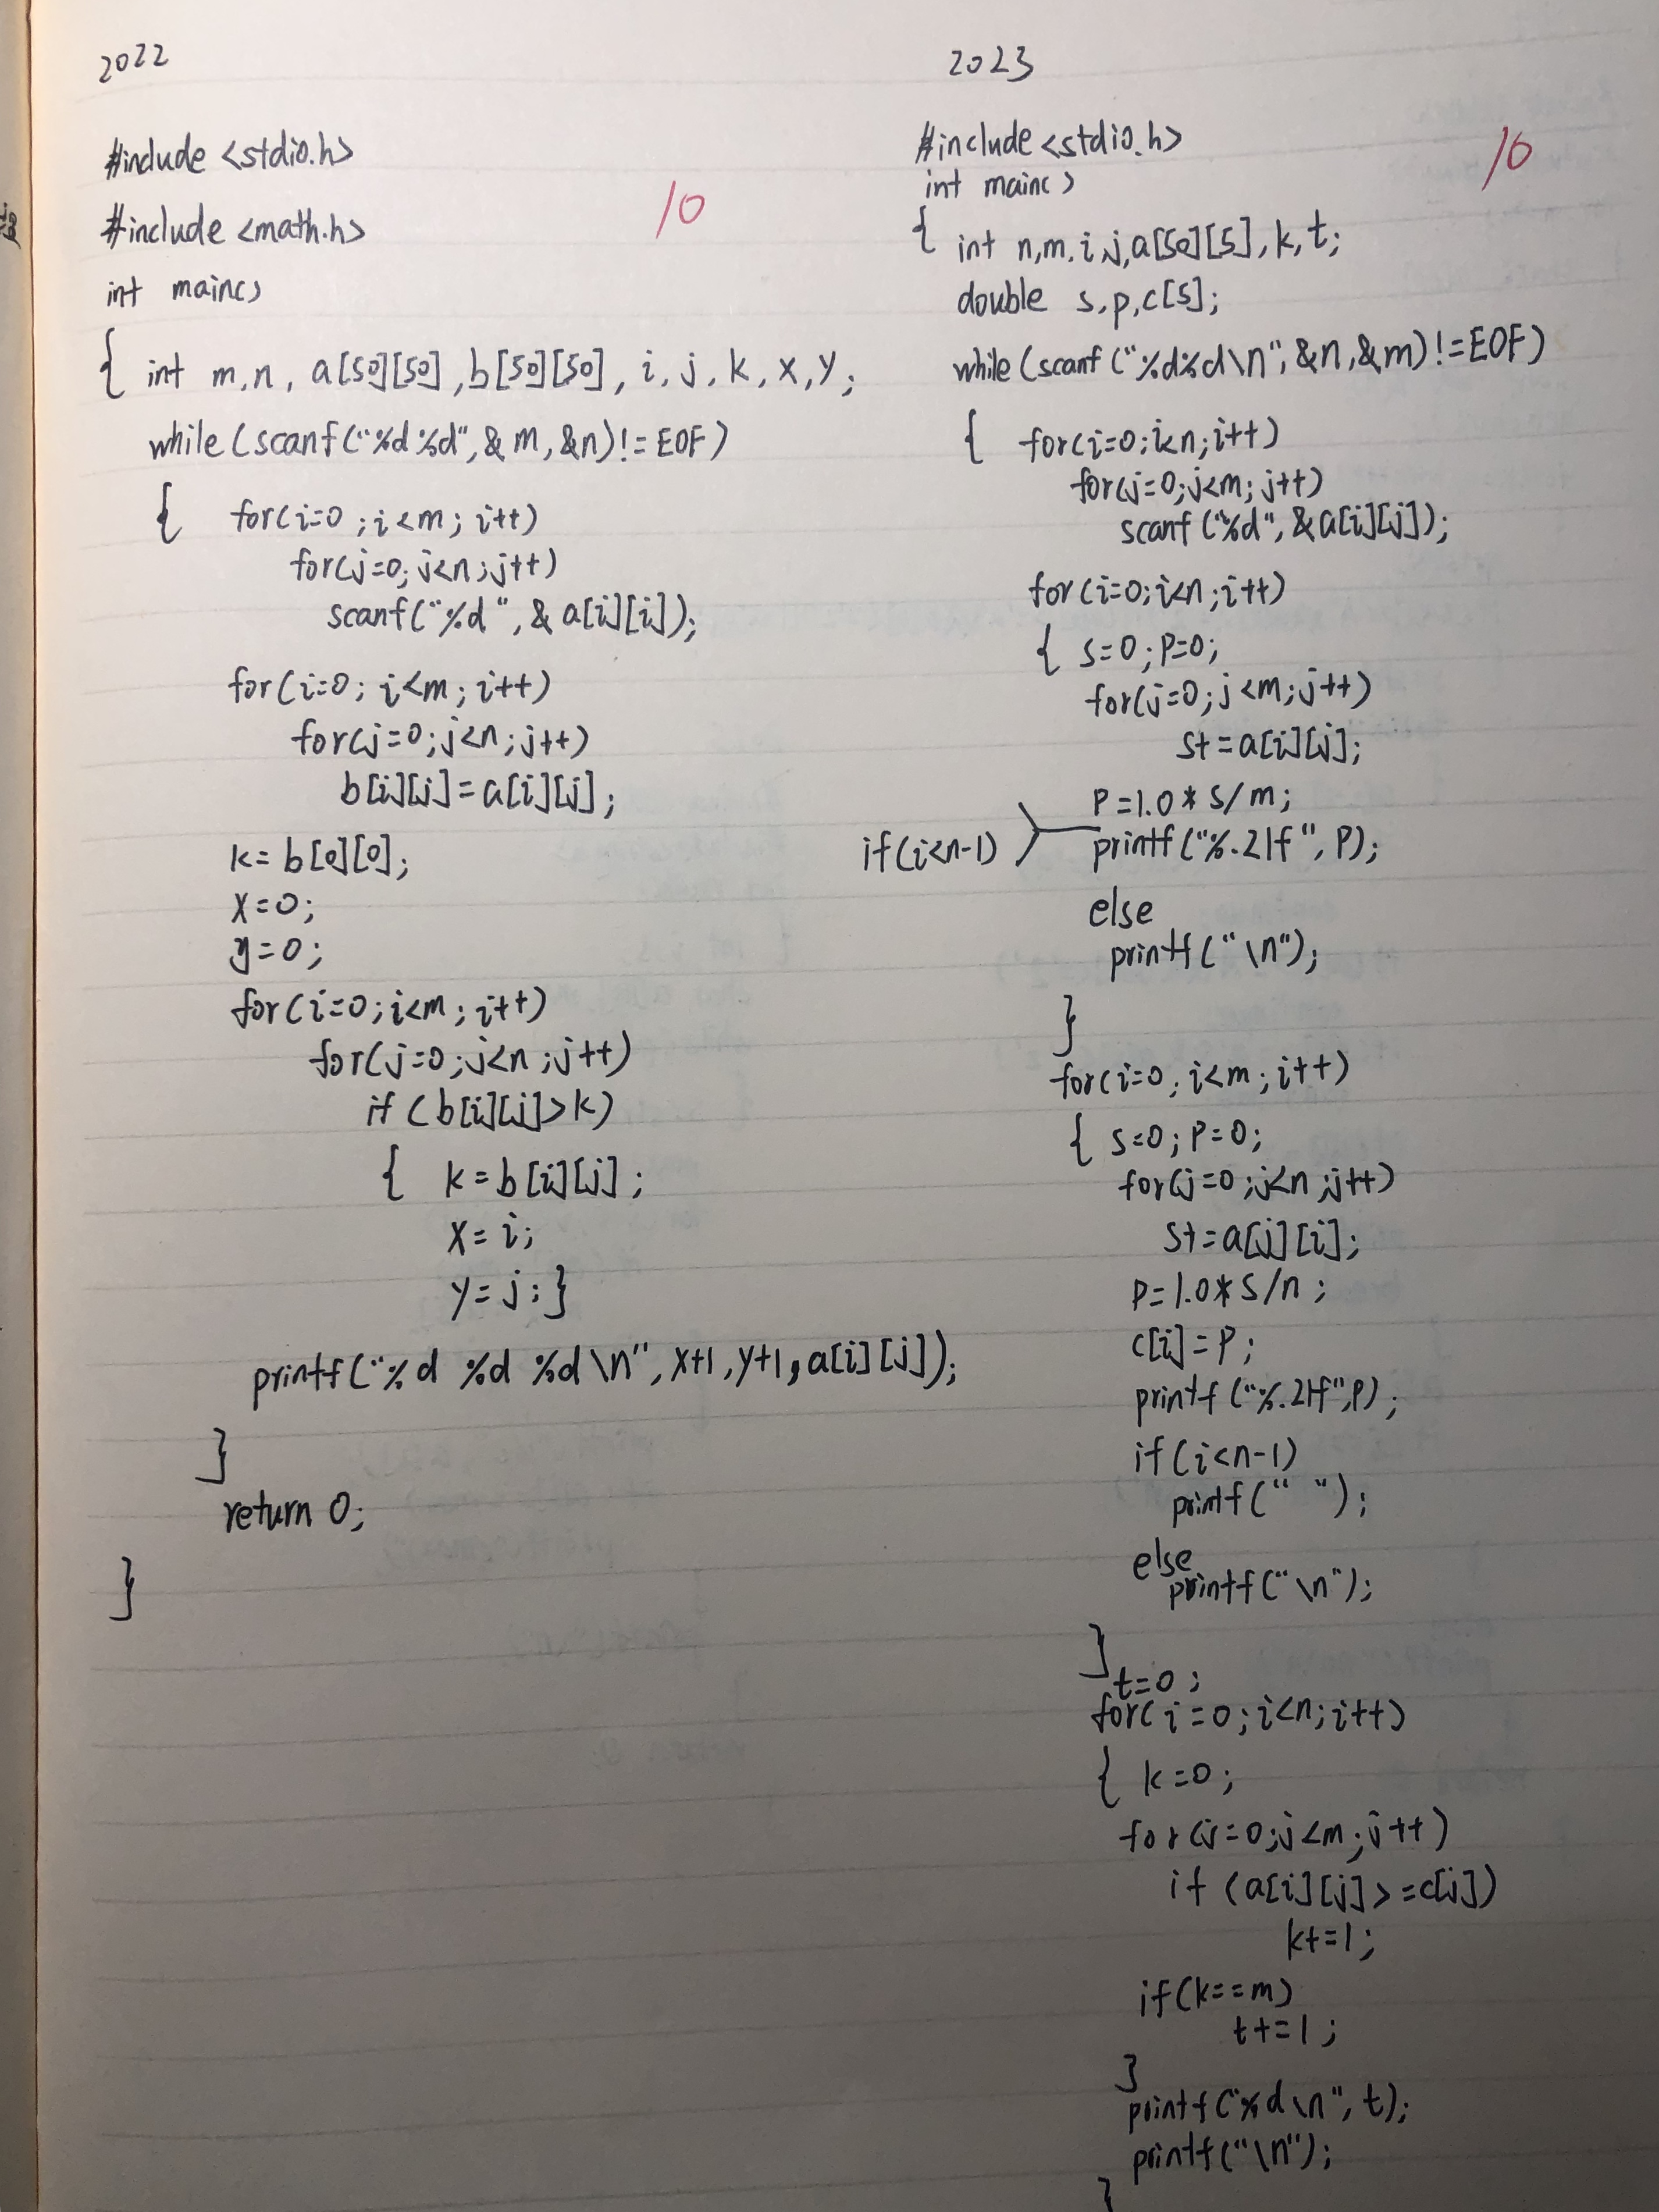 2022
#include <stdio.h>
10
#include <math.h>
int main()
{ int m,n, a[50][50], b[50][50], i, j, k, x, y;
while(scanf("%d %d", &m, &n)!=EOF)
{ for(i=0; i<m; i++)
for(j=0; j<n; j++)
scanf("%d", &a[i][i]);
for(i=0; i<m; i++)
for(j=0; j<n; j++)
b[i][j]=a[i][j];
k=b[0][0];
x=0;
y=0;
for(i=0; i<m; i++)
for(j=0; j<n; j++)
if(b[i][j]>k)
{ k=b[i][j];
x=i;
y=j; }
printf("%d %d %d\n", x+1, y+1, a[i][j]);
}
return 0;
}
2023
#include <stdio.h>
10
int main()
{ int n,m,i,j,a[50][5],k,t;
double s,p,c[5];
while(scanf("%d%d\n",&n,&m)!=EOF)
{ for(i=0;i<n;i++)
for(j=0;j<m;j++)
scanf("%d",&a[i][j]);
for(i=0;i<n;i++)
{ s=0;p=0;
for(j=0;j<m;j++)
s+=a[i][j];
p=1.0*s/m;
if(i<n-1) printf("%.2lf", p);
else
printf("\n");
}
for(i=0;i<m;i++)
{ s=0;p=0;
for(j=0;j<n;j++)
s+=a[j][i];
p=1.0*s/n;
c[i]=p;
printf("%.2lf",p);
if(i<n-1)
printf(" ");
else
printf("\n");
}
t=0;
for(i=0;i<n;i++)
{ k=0;
for(j=0;j<m;j++)
if(a[i][j]>=c[j])
k+=1;
if(k==m)
t+=1;
}
printf("%d\n",t);
printf("\n");
}